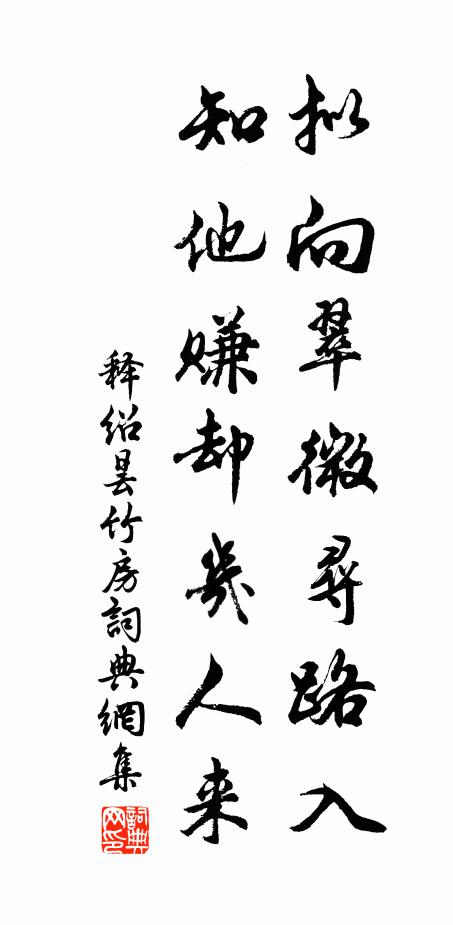 拟向翠微寻路入
知他赚却几人来
释绍昙竹房词典網集
詞典网印